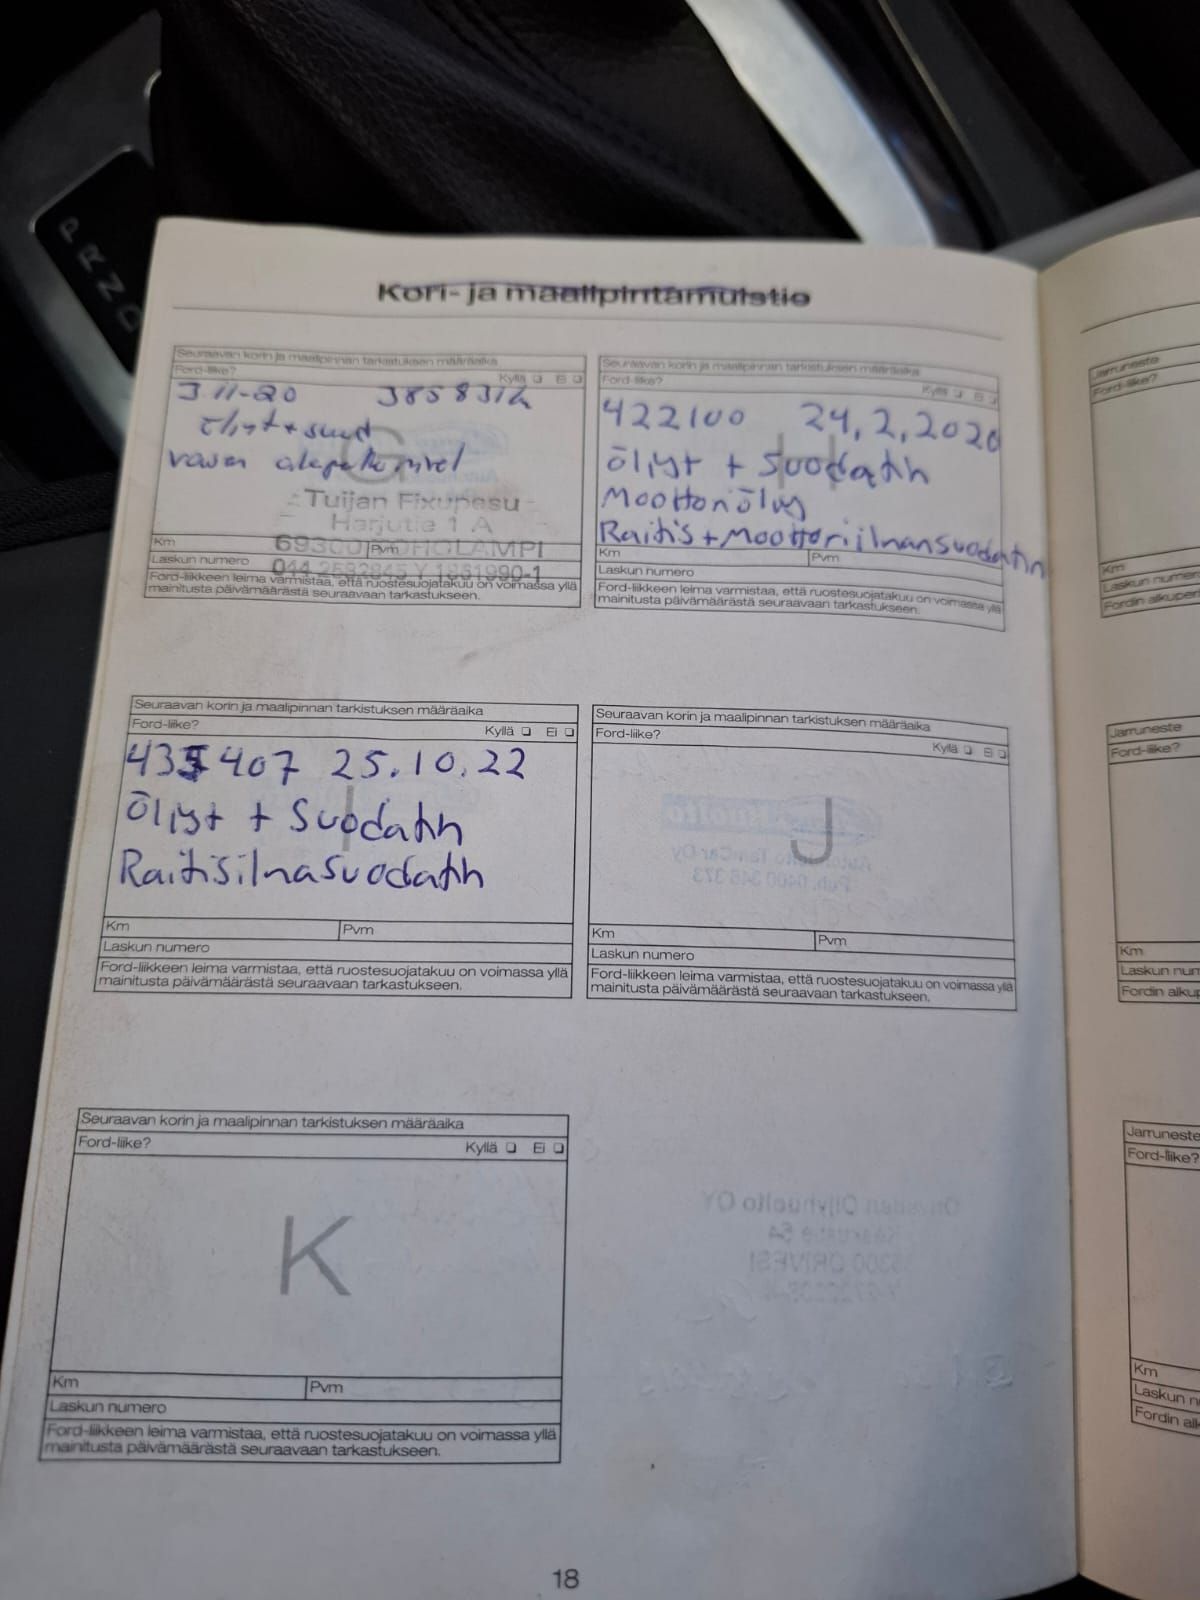 P
R
N
D
Kori- ja maalipintamuistio
Seuraavan korin ja maalipinnan tarkistuksen määräaika
Ford-liike?
Kyllä Ei
3.11-20 385831k
G
Tuijan Fixupesu
Harjutie 1 A
Km
Pvm
Laskun numero
Ford-liikkeen leima varmistaa, että ruostesuojatakuu on voimassa yllä
mainitusta päivämäärästä seuraavaan tarkastukseen.
Seuraavan korin ja maalipinnan tarkistuksen määräaika
Ford-liike?
Kyllä Ei
422100 24,2,2020
Öljyt + Suodatin
Moottoriöljy
Raitis + Moottoriilmansuodatin
Km
Pvm
Laskun numero
Ford-liikkeen leima varmistaa, että ruostesuojatakuu on voimassa yllä
mainitusta päivämäärästä seuraavaan tarkastukseen.
Seuraavan korin ja maalipinnan tarkistuksen määräaika
Ford-liike?
Kyllä Ei
435407 25.10.22
I
Öljyt + Suodatin
Raitisilmasuodatin
Km
Pvm
Laskun numero
Ford-liikkeen leima varmistaa, että ruostesuojatakuu on voimassa yllä
mainitusta päivämäärästä seuraavaan tarkastukseen.
Seuraavan korin ja maalipinnan tarkistuksen määräaika
Ford-liike?
Kyllä Ei
J
Km
Pvm
Laskun numero
Ford-liikkeen leima varmistaa, että ruostesuojatakuu on voimassa yllä
mainitusta päivämäärästä seuraavaan tarkastukseen.
Seuraavan korin ja maalipinnan tarkistuksen määräaika
Ford-liike?
Kyllä Ei
K
Km
Pvm
Laskun numero
Ford-liikkeen leima varmistaa, että ruostesuojatakuu on voimassa yllä
mainitusta päivämäärästä seuraavaan tarkastukseen.
18
Jarruneste
Ford-liike?
Km
Jarruneste
Ford-liike?
Km
Jarruneste
Ford-liike?
Km